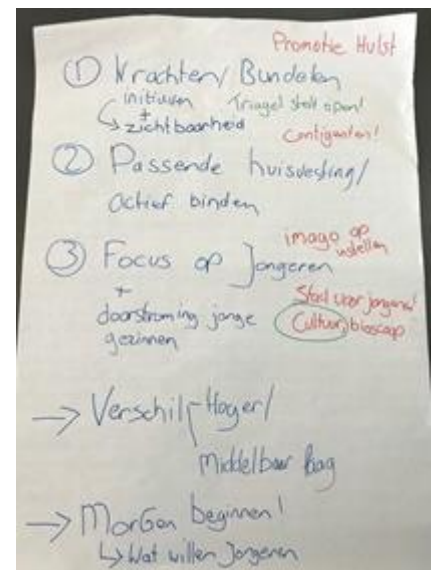 Promotie Hulst
① Krachten/Bundelen
initiatieven
+
zichtbaarheid
stelt open!
Contigenten!
② Passende huisvesting/
actief binden
imago op
③ Focus op Jongeren
+
doorstroming jonge
gezinnen
Stad voor jongeren!
Cultuur, bioscoop
→ Verschil Hoger/
Middelbaar
→ Morgen beginnen!
↳ Wat willen Jongeren